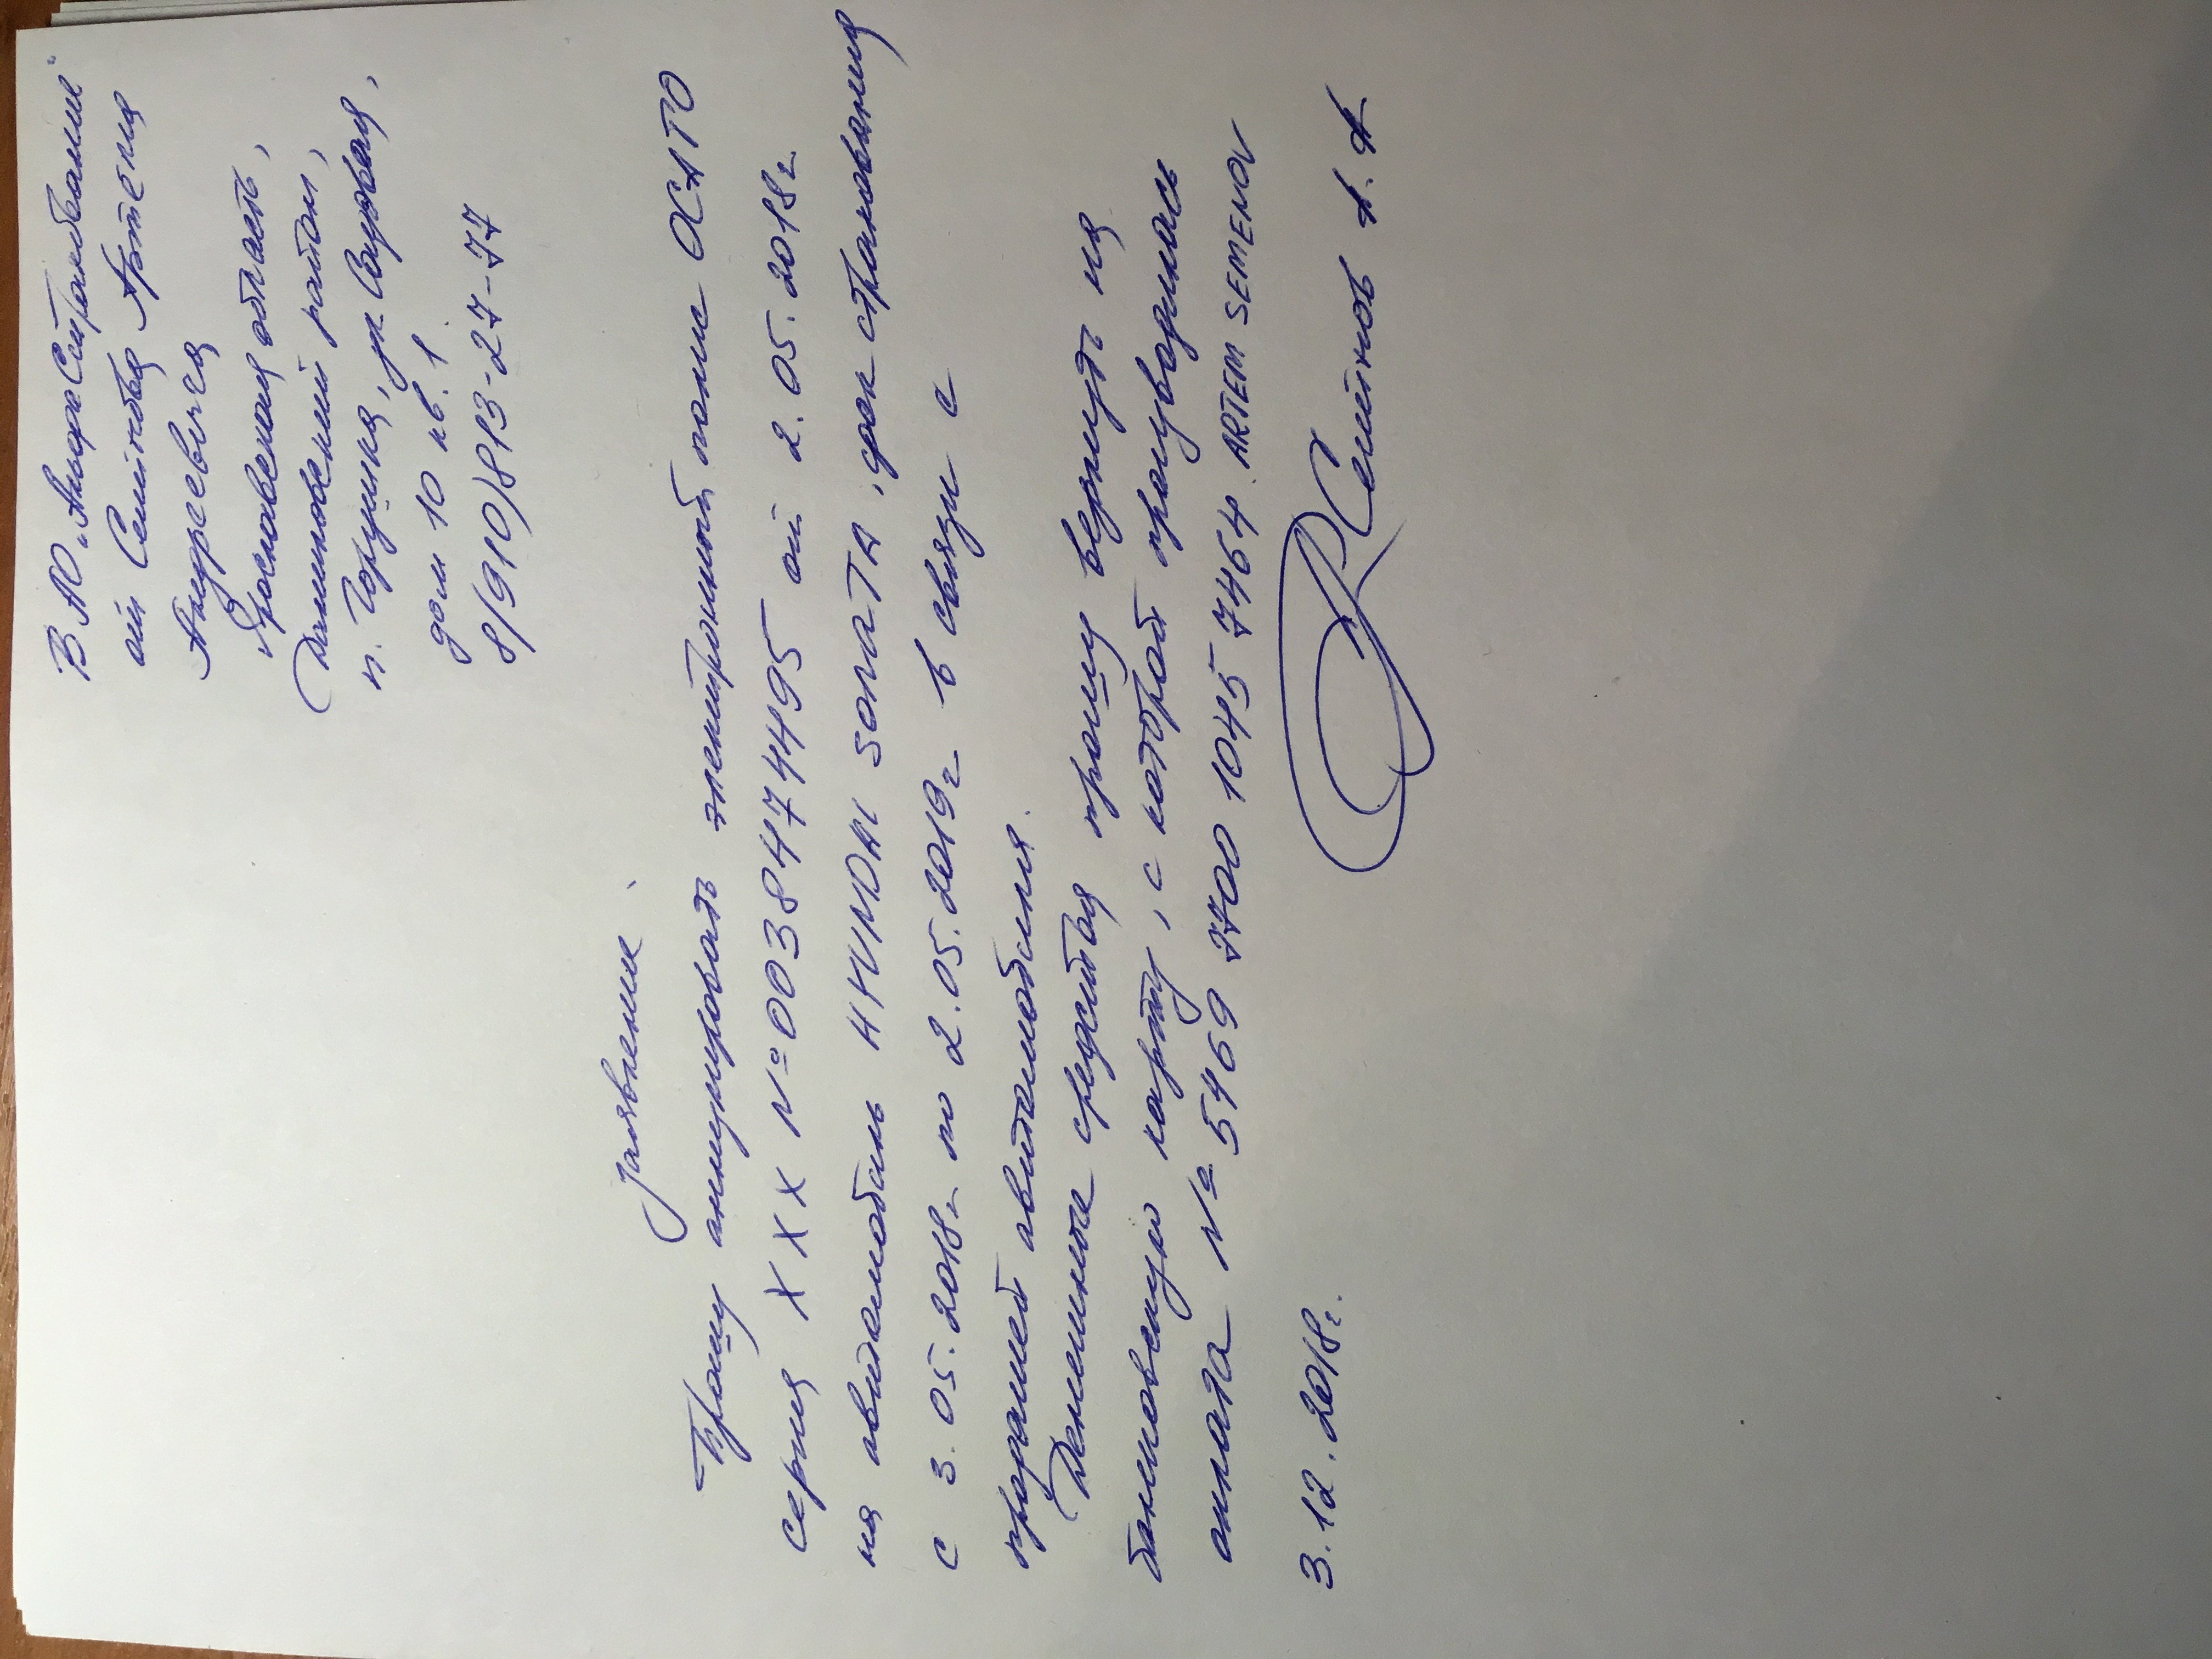 В АО „АльфаСтрахование"
от Семенова Артема
Андреевича
Ярославская область,
Даниловский район,
п. Горушка, ул. Садовая,
дом 10 кв. 1
8(910)813-27-77
Заявление
Прошу аннулировать электронный полис ОСАГО
серия XXX №0038474495 от 2.05.2018г.
на автомобиль HYUNDAI SONATA, срок страхования
с 3.05.2018г по 2.05.2019г в связи с
продажей автомобиля.
Денежные средства прошу вернуть на
банковскую карту, с которой производилась
оплата № 5469 7700 1045 7464 ARTEM SEMENOV
3.12.2018г. Семенов А.А.